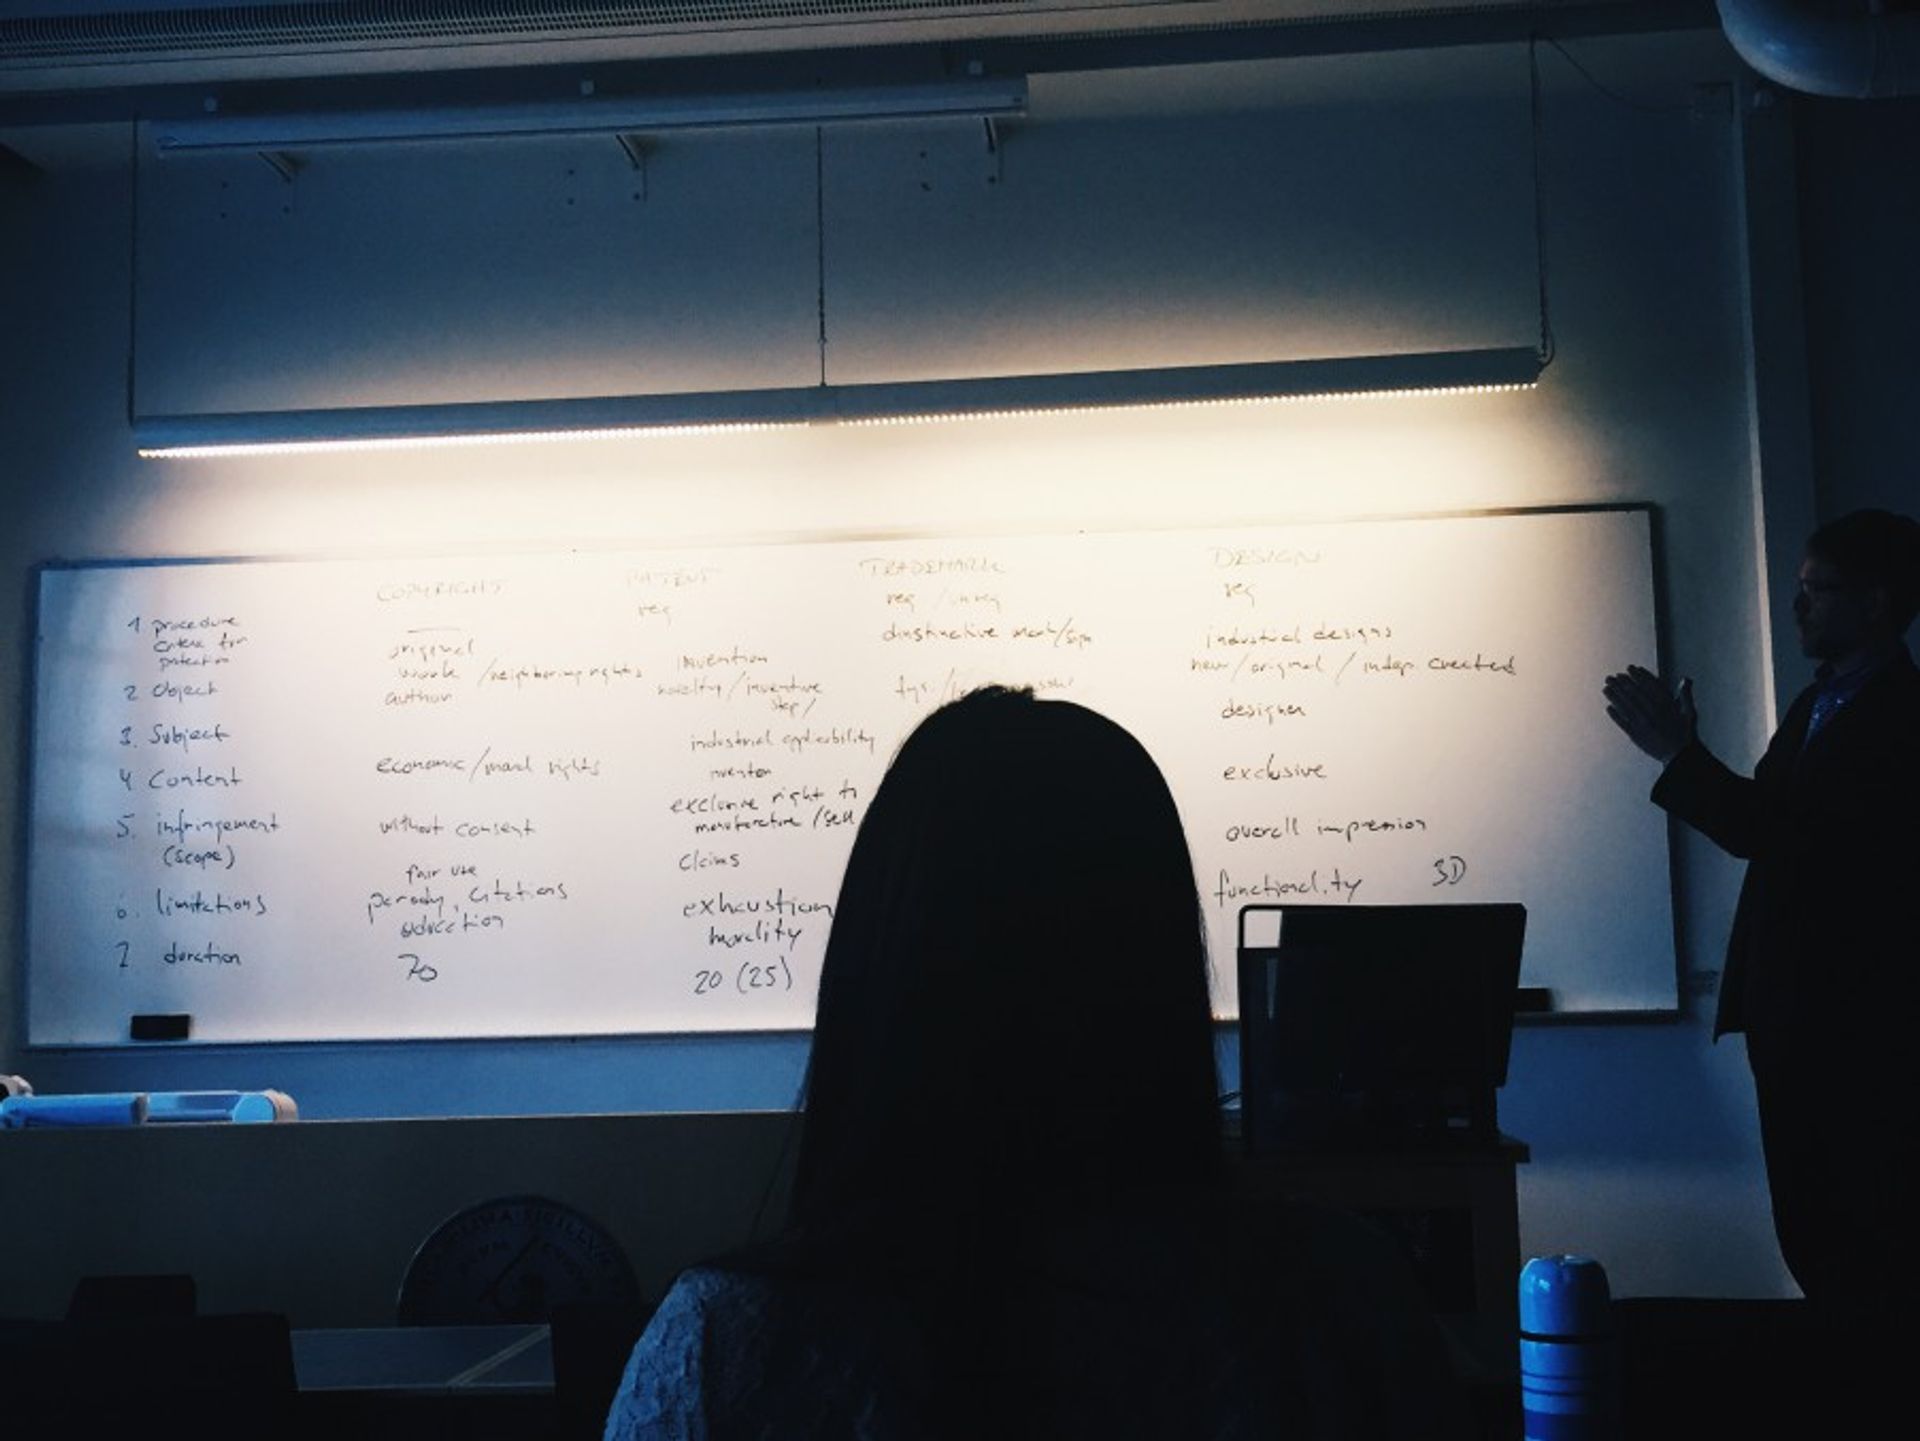 COPYRIGHT PATENT TRADEMARK DESIGN
reg reg / unreg reg
1 procedure
criteria for
protection
original
work / neighboring rights
author
invention
novelty / inventive
step /
distinctive mark/sign
industrial designs
new / original / indep. created
2 Object
designer
3. Subject
industrial applicability
inventor
4 Content
economic / moral rights
exclusive right to
manufacture / sell
exclusive
5. infringement
(scope)
without consent
claims
overall impression
6. limitations
fair use
parody, citations
education
exhaustion
morality
functionality 3D
7 duration
70
20 (25)
SIGILLVM